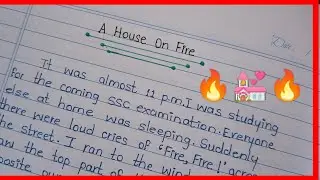 A House On Fire
It was almost 12 p.m. I was studying
for the coming SSC examination. Everyone
else at home was sleeping. Suddenly
there were loud cries of 'Fire, Fire!' acr
the street. I ran to the wind
the top part of th